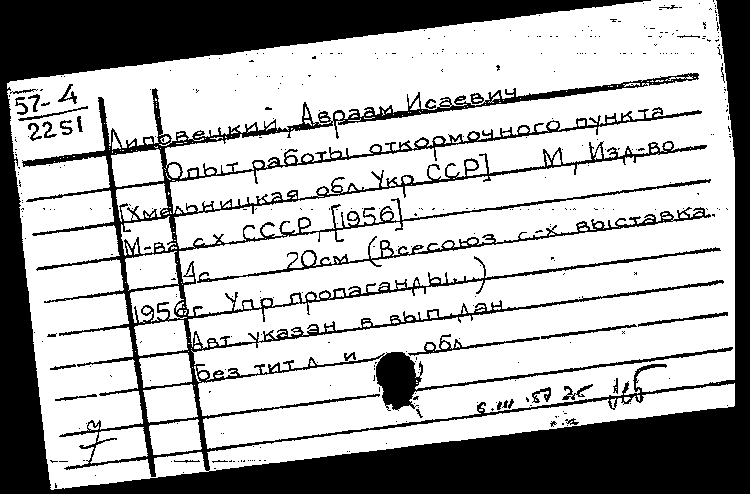 57-4
2251
Липовецкий, Авраам Исаевич
Опыт работы откормочного пункта
[Хмельницкая обл. Укр ССР]. М, Изд-во
М-ва с.х. СССР, [1956].
4с 20см (Всесоюз. с.-х. выставка.
1956г. Упр пропаганды...)
Авт указан в вып. дан.
Без тит л и обл
6.III.57 25